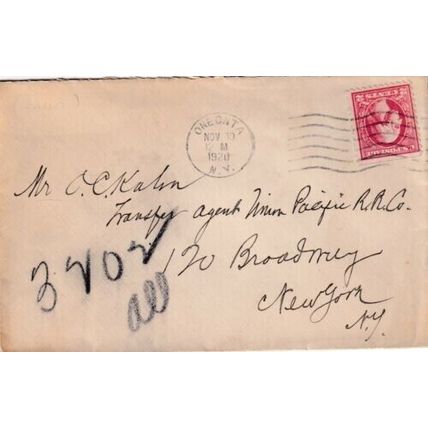 ONEONTA
NOV 30
12 M
1920
N.Y.
2 CENTS 2
Mr O. C. Kahn
Transfer agent Union Pacific R.R. Co.
120 Broadway
New York
N.Y.
3202
all